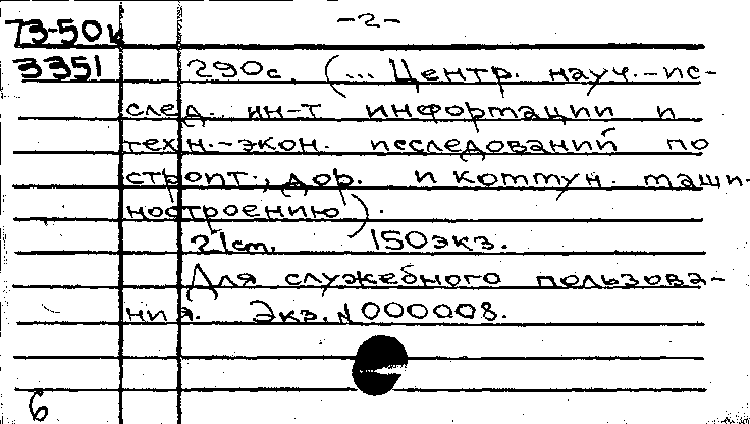 73-50к
-2-
3351
290с. (... Центр. науч.-ис-
след. ин-т информации и
техн.-экон. исследований по
строит., дор. и коммун. маши-
ностроению).
21см. 150экз.
Для служебного пользова-
ния. Экз. N 000008.
6